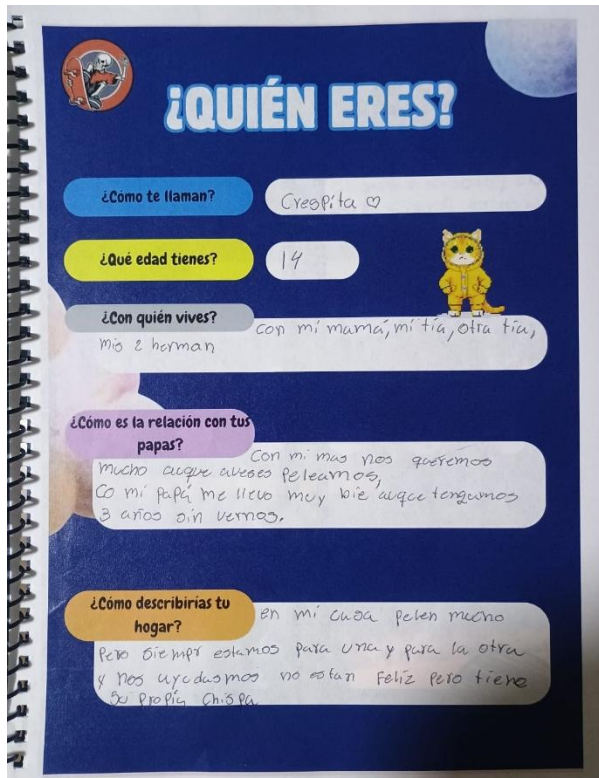 ¿QUIÉN ERES?
¿Cómo te llaman?
Crespita ♡
¿Qué edad tienes?
14
¿Con quién vives?
con mi mamá, mi tía, otra tía,
mis 2 herman
¿Cómo es la relación con tus
papas?
Con mi mas nos queremos
mucho auque aveses peleamos,
Co mi papá me llevo muy bie auque tengamos
3 años sin vernos.
¿Cómo describirías tu
hogar?
en mi casa pelen mucho
Pero siempr estamos para una y para la otra
y nos ayudasmos no es tan Feliz pero tiene
su propia chispa